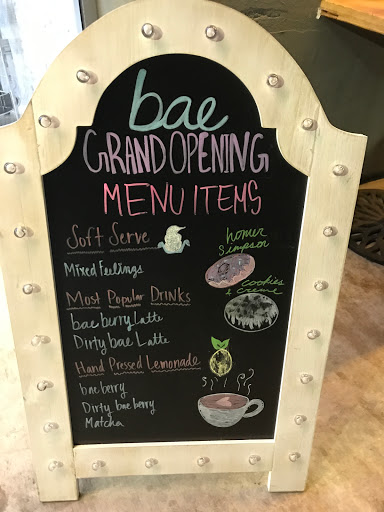 bae
GRAND OPENING
MENU ITEMS
Soft Serve
Mixed Feelings
homer
simpson
cookies
+ creme
Most Popular Drinks
bae berry Latte
Dirty bae Latte
Hand Pressed Lemonade
bae berry
Dirty bae berry
Matcha